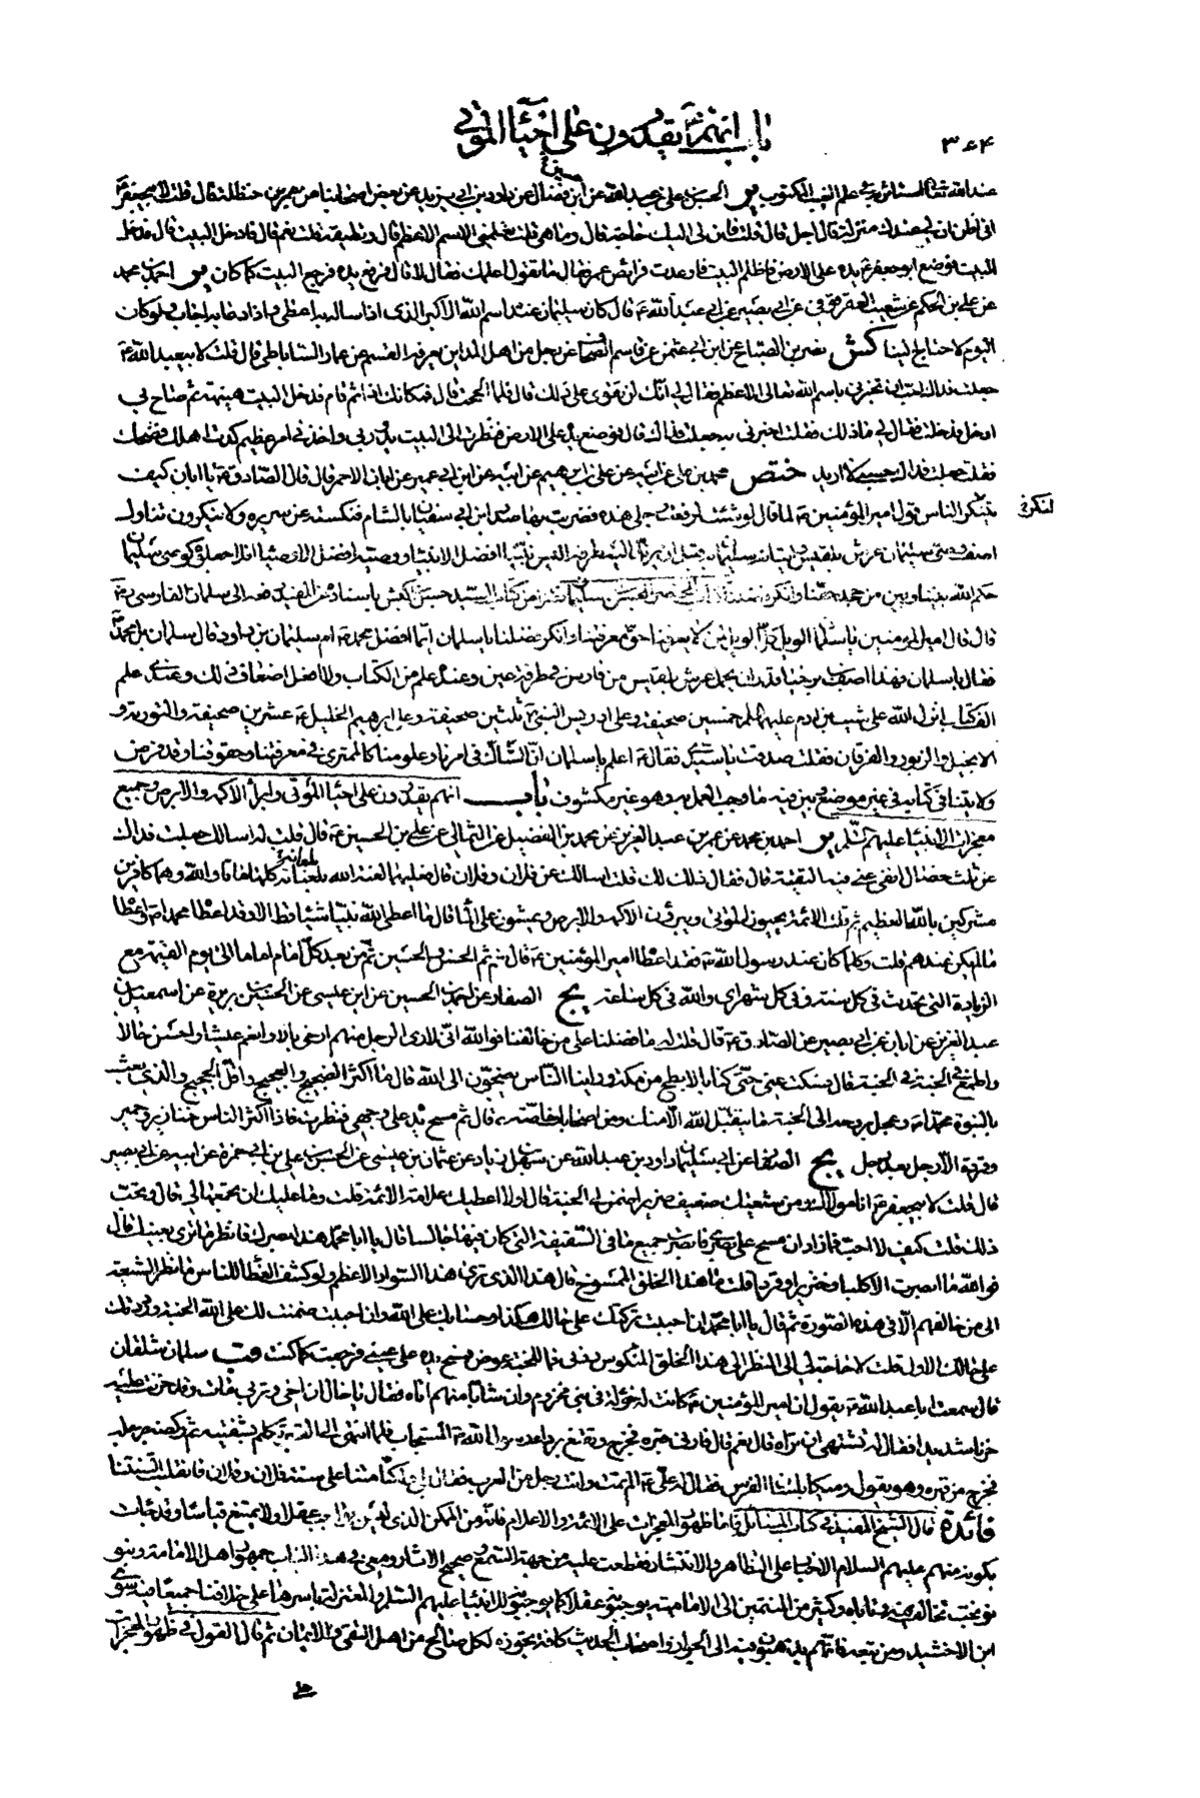 باب انهم يقدرون على احياء الموتى
۳۶۴
عند الله تعالى استاثر به في علم الغيب المكتوب ير الحسن بن علي بن عبد الله عن ابن فضال عن داود بن ابي يزيد عن بعض اصحابنا عن عمر بن حنظلة قال قلت لابيجعفر ع
اني اظن ان لي عندك منزلة قال اجل قال قلت فان لي اليك حاجة قال وما هي قلت تعلمني الاسم الاعظم قال وتطيقه قلت نعم قال فادخل البيت قال فدخل
البيت فوضع ابو جعفر ع يده على الارض فاظلم البيت فارعدت فرائص عمر فقال ما تقول اعلمك فقال لا قال فرفع يده فرجع البيت كما كان ير احمد بن محمد
عن علي بن الحكم عن شعيب العقرقوفي عن ابي بصير عن ابي عبد الله ع قال كان سليمان عنده اسم الله الاكبر الذي اذا ساله به اعطي واذا دعا به اجاب ولو كان
اليوم لاحتاج الينا كش نصر بن الصباح عن ابن ابي عثمن عن قاسم الصحاف عن رجل من اهل المداين يعرفه القسم عن عمار الساباطي قال قلت لابيعبد الله ع
جعلت فداك احب ان تخبرني باسم الله تعالى الاعظم فقال لي انك لن تقوى على ذلك قال فلما الححت قال فمكانك اذا ثم قام فدخل البيت هنيهة ثم صاح بي
ادخل فدخلت فقال لي ما ذلك فقلت اخبرني به جعلت فداك قال فوضع يده على الارض فنظرت الى البيت يدور بي واخذني امر عظيم كدت اهلك فضحك
فقلت جعلت فداك حسبي لا اريد ختص محمد بن علي عن ابيه عن علي بن ابرهيم عن ابيه عن ابن ابي عمير عن ابان الاحمر قال قال الصادق ع يا ابان كيف
تنكر الناس قول امير المؤمنين ع لما قال لو شئت لرفعت رجلي هذه فضربت بها صدر ابن ابي سفيان بالشام فنكسته عن سريره ولا ينكرون تناول
اصف وصي سليمان عرش بلقيس واتيانه سليمان به قبل ان يرتد اليه طرفه اليس نبينا افضل الانبياء ووصيه افضل الاوصياء افلا جعلوه كوصي سليمان
حكم الله بيننا وبين من جحد حقنا وانكر فضلنا كتاب السيد حسن بن كبش باسناده عن المفيد رفعه الى سلمان الفارسي ره
قال قال امير المؤمنين يا سلمان الويل كل الويل لمن لا يعرف لنا حق معرفتنا وانكر فضلنا يا سلمان ايما افضل محمد ص ام سليمان بن داود قال سلمان بل محمد ص
فقال يا سلمان فهذا اصف بن برخيا قدر ان يحمل عرش بلقيس من فارس في طرفة عين وعنده علم من الكتاب ولا افعل اضعاف ذلك وعندي علم
الف كتاب انزل الله على شيث بن ادم عليهما السلم خمسين صحيفة وعلى ادريس النبي ع ثلثين صحيفة وعلى ابرهيم الخليل ع عشرين صحيفة والتورية و
الانجيل والزبور والفرقان فقلت صدقت يا سيدي فقال ع اعلم يا سلمان ان الشاك في امرنا وعلومنا كالممتري في معرفتنا وحقوقنا وقد فرض
ولايتنا في كتابه في غير موضع وبين فيه ما وجب العمل به وهو غير مكشوف باب انهم يقدرون على احياء الموتى وابراء الاكمه والابرص وجميع
معجزات الانبياء عليهم السلم ير احمد بن محمد عن عمر بن عبد العزيز عن محمد بن الفضيل عن الثمالي عن علي بن الحسين ع قال قلت له اسالك جعلت فداك
عن ثلث خصال انفي عني فيه التقية قال فقال ذلك لك قلت اسالك عن فلان وفلان قال فعليهما لعنة الله بلعناته كلها ماتا والله وهما كافرين
مشركين بالله العظيم ثم قلت الائمة يحيون الموتى ويبرؤن الاكمه والابرص ويمشون على الماء قال ما اعطى الله نبيا شيئا قط الا وقد اعطاه محمدا ص واعطاه
ما لم يكن عندهم قلت وكلما كان عند رسول الله ص فقد اعطاه امير المؤمنين ع قال نعم ثم الحسن والحسين ثم من بعد كل امام اماما الى يوم القيمة مع
الزيادة التي تحدث في كل سنة وفي كل شهر اي والله في كل ساعة يج الصفار عن احمد بن الحسين عن ابن عيسى عن الحسين بن بريرة عن اسمعيل بن
عبد العزيز عن ابان عن ابي بصير عن الصادق ع قال قلت له ما فضلنا على من خالفنا فوالله اني لارى الرجل منهم ارخى بالا وانعم عيشا واحسن حالا
واطمع في الجنة قال فسكت عني حتى كنا بالابطح من مكة وراينا الناس يضجون الى الله قال ما اكثر الضجيج والعجيج واقل الحجيج والذي بعث
بالنبوة محمدا ص وعجل بروحه الى الجنة ما يتقبل الله الا منك ومن اصحابك خاصة قال ثم مسح يده على وجهي فنظرت فاذا اكثر الناس خنازير وحمير
وقردة الا رجل بعد رجل يج الصفار عن ابي سليمان داود بن عبد الله عن سهل بن زياد عن عثمان بن عيسى عن الحسن بن علي بن ابي حمزة عن ابيه عن ابي بصير
قال قلت لابيجعفر ع انا مولاك ومن شيعتك ضعيف ضرير اضمن لي الجنة قال اولا اعطيك علامة الائمة قلت وما عليك ان تجمعها لي قال وتحب
ذلك قلت كيف لا احب فما زاد ان مسح على بصري فابصرت جميع ما في السقيفة التي كان فيها جالسا قال يا ابا محمد هذا بصرك فانظر ما ترى بعينك قال
فوالله ما ابصرت الا كلبا وخنزيرا وقردا قلت ما هذا الخلق الممسوخ قال هذا الذي ترى هذا السواد الاعظم ولو كشف الغطاء للناس ما نظر الشيعة
الى من خالفهم الا في هذه الصورة ثم قال يا ابا محمد ان احببت تركتك على حالك هكذا وحسابك على الله وان احببت ضمنت لك على الله الجنة ورددتك
على حالك الاول قلت لا حاجة لي الى النظر الى هذا الخلق المنكوس ردني فما للجنة عوض فمسح يده على عيني فرجعت كما كنت قب سلمان شلقان
قال سمعت ابا عبد الله ع يقول ان امير المؤمنين ع كانت له خؤلة في بني مخزوم وان شابا منهم اتاه فقال يا خال ان اخي وتربي مات وقد حزنت عليه
حزنا شديدا فقال له تشتهي ان تراه قال نعم قال فارني قبره فخرج وتقنع برداء رسول الله ص المستجاب فلما انتهى الى القبر تكلم بشفتيه ثم ركضه برجله
فخرج من قبره وهو يقول وميكا بلسان الفرس فقال له علي ع الم تمت وانت رجل من العرب فقال بلى ولكنا متنا على سنة فلان وفلان فانقلبت السنتنا
فائدة قال الشيخ المفيد في كتاب المسائل فاما ظهور المعجزات على الائمة والاعلام فانه من الممكن الذي ليس بواجب عقلا ولا ممتنع قياسا وقد جاءت
بكونه منهم عليهم السلام الاخبار على التظاهر والانتشار فقطعت عليه من جهة السمع وصحيح الاثار ومعي في هذا الباب جمهور اهل الامامة وبنو
نوبخت تخالف فيه وتاباه وكثير من المنتمين الى الامامية يوجبونه عقلا كما يوجبونه للانبياء عليهم السلم والمعتزلة باسرها على خلافنا جميعا فيه سوى
ابن الاخشيد ومن تبعه فانهم يذهبون فيه الى الجواز واصحاب الحديث كافة تجوزه لكل صالح من اهل التقى والايمان ثم قال القول في ظهور المعجزات